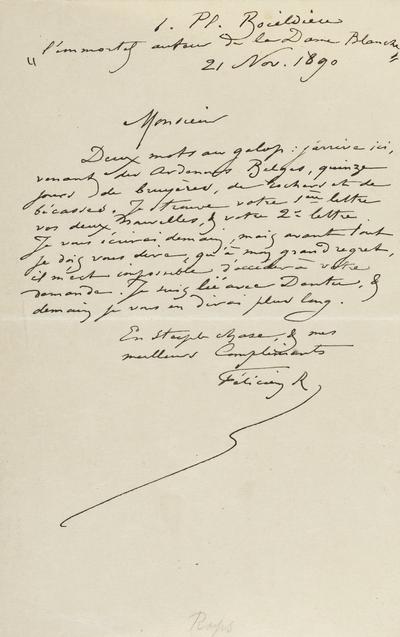 1. Pl. Boieldieu
"l'immortel auteur de la Dame Blanche"
21 Nov. 1890
Monsieur
Deux mots au galop : j'arrive ici,
venant des Ardennes Belges, quinze
jours de bruyères, de rochers et de
bécasses. Je trouve votre 1ère lettre
vos deux nouvelles, & votre 2e lettre.
Je vous écrirai demain, mais avant tout
je dois vous dire, qu'à mon grand regret,
il m'est impossible d'accéder à votre
demande. Je suis lié avec Dentu, &
demain je vous en dirai plus long.
En steeple chase, & mes
meilleurs Compliments
Félicien R
Rops